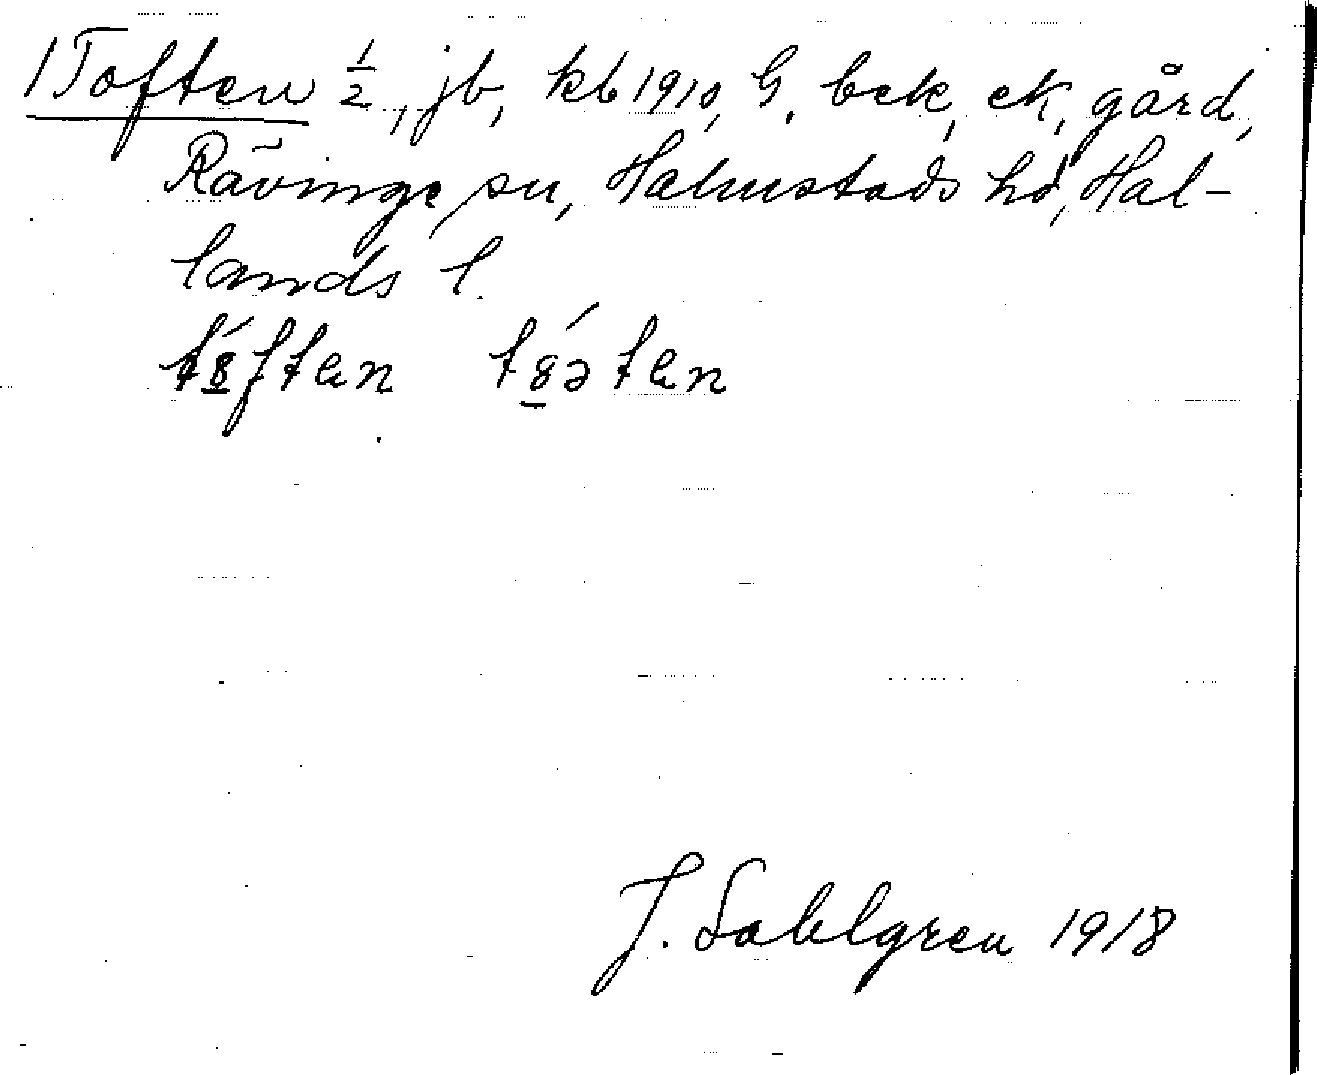 1 Toften ½, jb, kb 1910, G. bek, ek, gård,
Rävinge sn, Halmstads hd, Hal-
lands l.
J. Sahlgren 1918